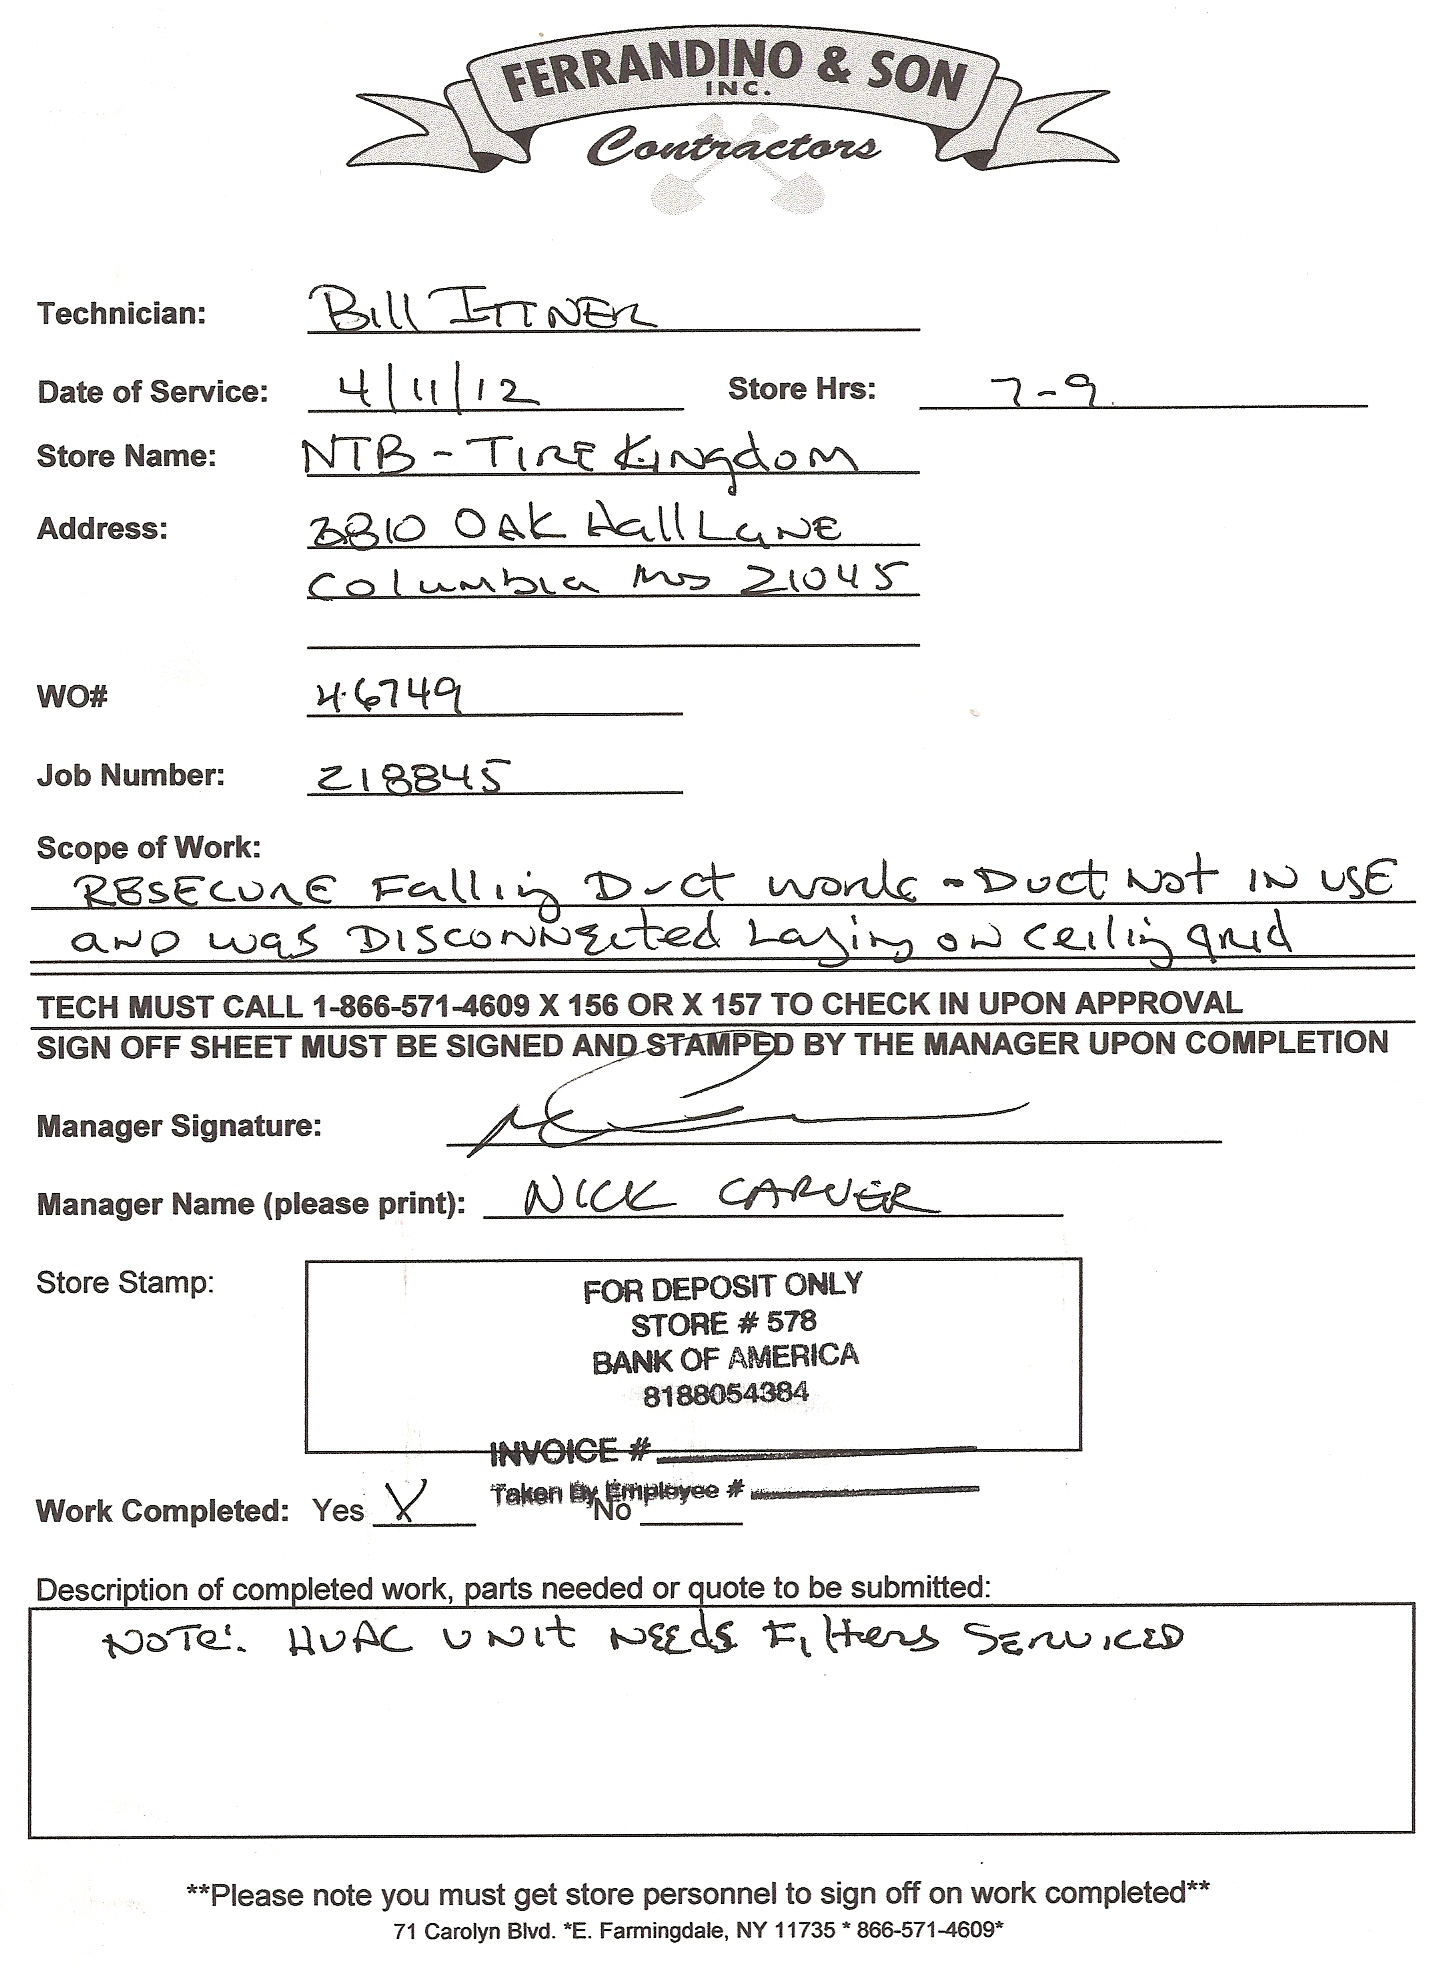 FERRANDINO & SON
INC.
Contractors
Technician: Bill ITTNER
Date of Service: 4/11/12 Store Hrs: 7-9
Store Name: NTB - TIRE KINgdOM
Address: 3810 OAK HallLaNE
Columbia MD 21045
WO# 46749
Job Number: 218845
Scope of Work:
RESECURE Falling Duct work - Duct Not IN USE
AND was DISCONNected Laying ON Ceiling grid
TECH MUST CALL 1-866-571-4609 X 156 OR X 157 TO CHECK IN UPON APPROVAL
SIGN OFF SHEET MUST BE SIGNED AND STAMPED BY THE MANAGER UPON COMPLETION
Manager Signature:
Manager Name (please print): NICK CARVER
Store Stamp:
FOR DEPOSIT ONLY
STORE # 578
BANK OF AMERICA
8188054384
INVOICE #
Taken By Employee #
Work Completed: Yes X No
Description of completed work, parts needed or quote to be submitted:
NOTE: HVAC UNIT NEEdS Filters SERVICED
**Please note you must get store personnel to sign off on work completed**
71 Carolyn Blvd. *E. Farmingdale, NY 11735 * 866-571-4609*